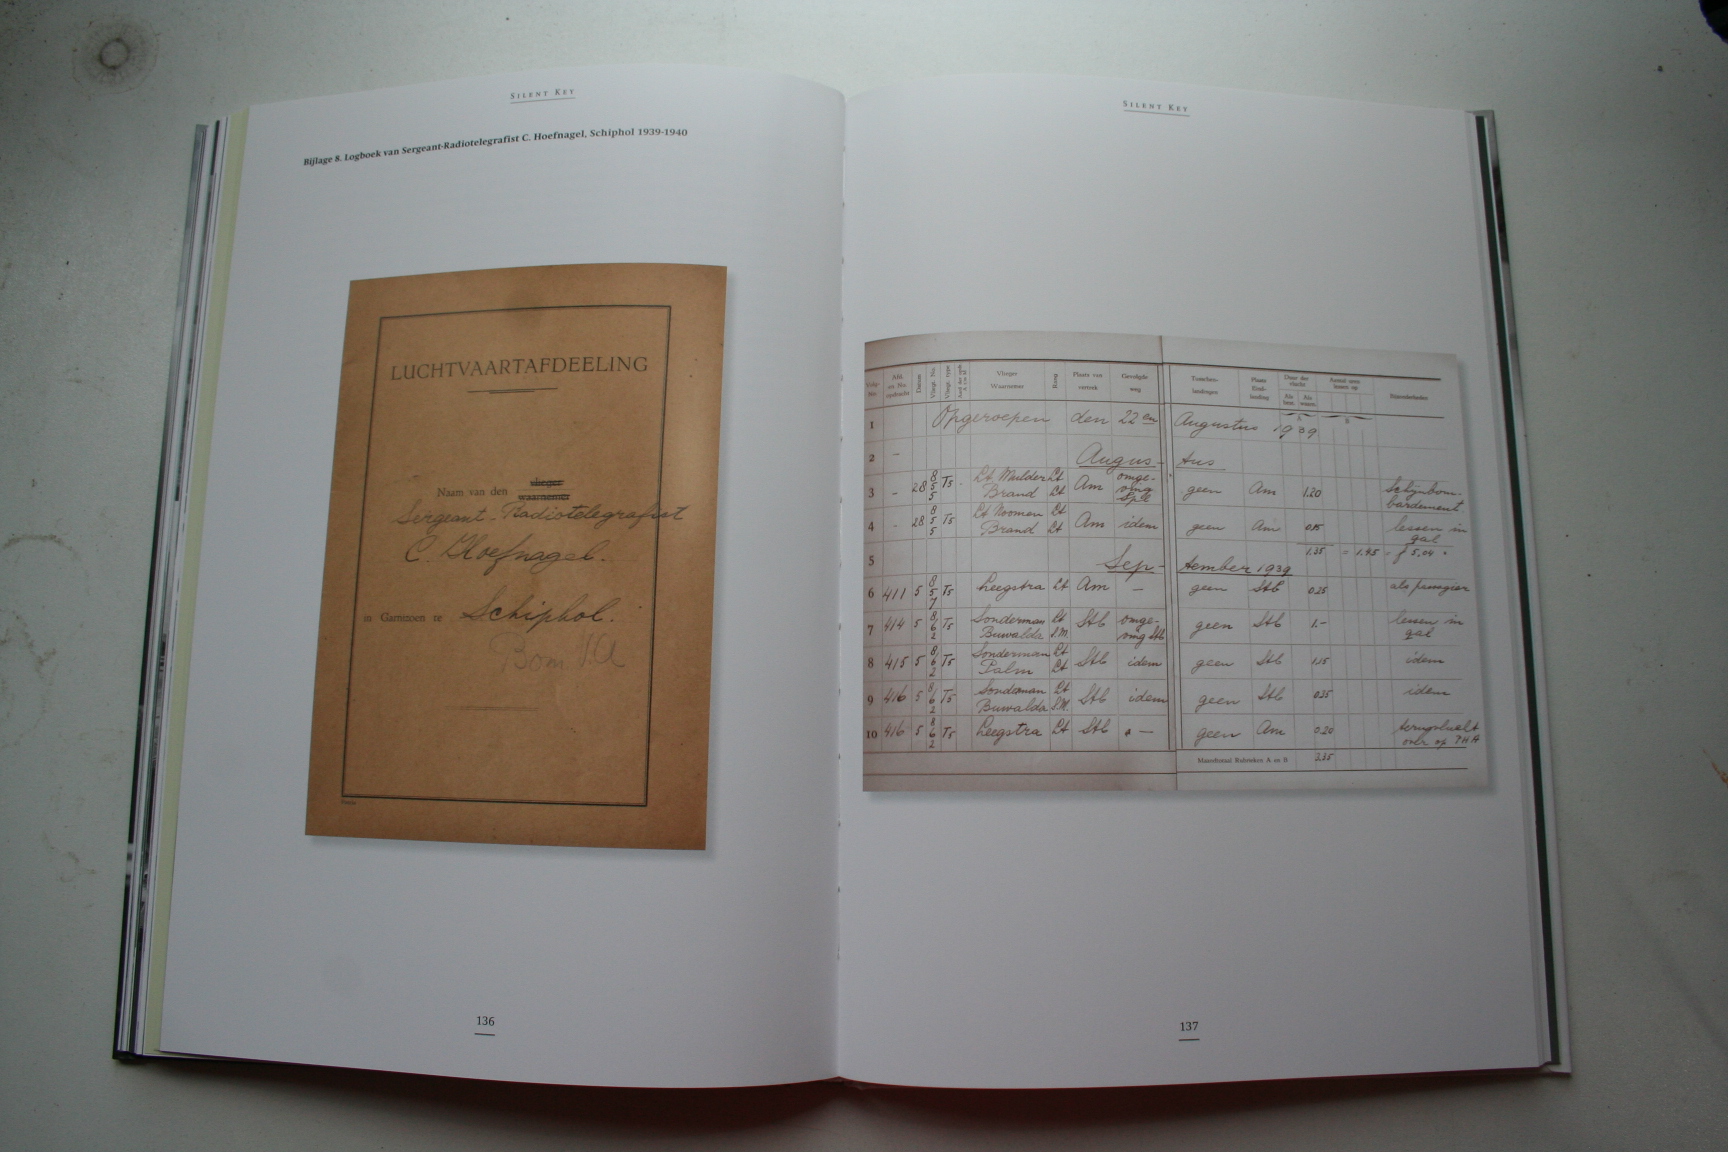 SILENT KEY
Bijlage 8. Logboek van Sergeant-Radiotelegrafist C. Hoefnagel, Schiphol 1939-1940
LUCHTVAARTAFDEELING
Naam van den vlieger
waarnemer
Sergeant-Radiotelegrafist
C. Hoefnagel.
in Garnizoen te Schiphol.
Bom V.A
136
SILENT KEY
Volg- No. Afd. en No. opdracht Datum Vliegt. No. Vliegt. type Vlieger Waarnemer Rang Plaats van vertrek Gevolgde weg Tusschen- landingen Plaats Eind- landing Duur der vlucht Als best. Als waarn. Aantal uren lessen op Bijzonderheden
A B
1 Opgeroepen den 22en Augustus 1939
2 - Augus- tus
3 - 28 8 5 5 T5 Lt Mulder Lt Am omge- ving Spl geen Am 1.20 Schijnbom-
Brand Lt bardement
4 - 28 8 5 5 T5 Lt Noomen Lt Am idem geen Am 0.15 lessen in
Brand Lt gal
1.35 = 1.45 = f 5,04
5 Sep- tember 1939
6 411 5 8 5 7 T5 Leegstra Lt Am — geen Stb 0.25 als passagier
7 414 5 8 6 2 T5 Sonderman Lt Stb omge- geen Stb 1.- lessen in
Buwalda S.M. ving Stb gal
8 415 5 8 6 2 T5 Sonderman Lt Stb idem geen Stb 1.15 idem
Palm Lt
9 416 5 8 6 2 T5 Sonderman Lt Stb idem geen Stb 0.35 idem
Buwalda S.M.
10 416 5 8 6 2 T5 Leegstra Lt Stb — geen Am 0.20 terugvlucht
over op
Maandtotaal Rubrieken A en B 3.35
137